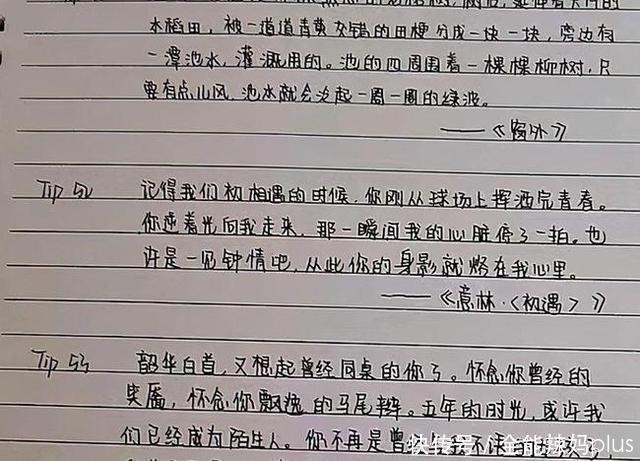 水稻田，被一道道青黄交错的田梗分成一块一块，旁边有
一潭池水，灌溉用的。池的四周围着一棵棵柳树，只
要有点儿风，池水就会泛起一圈一圈的绿波。
——《窗外》
Tip 52 记得我们初相遇的时候，你刚从球场上挥洒完青春。
你逆着光向我走来，那一瞬间我的心脏停了一拍。也
许是一见钟情吧，从此你的身影就烙在我心里。
——《意林·<初遇>》
Tip 53 韶华白首，又想起曾经同桌的你了。怀念你曾经的
笑靥，怀念你飘逸的马尾辫。五年的时光，或许我
们已经成为陌生人。你不再是曾
快传号／全能辣妈plus